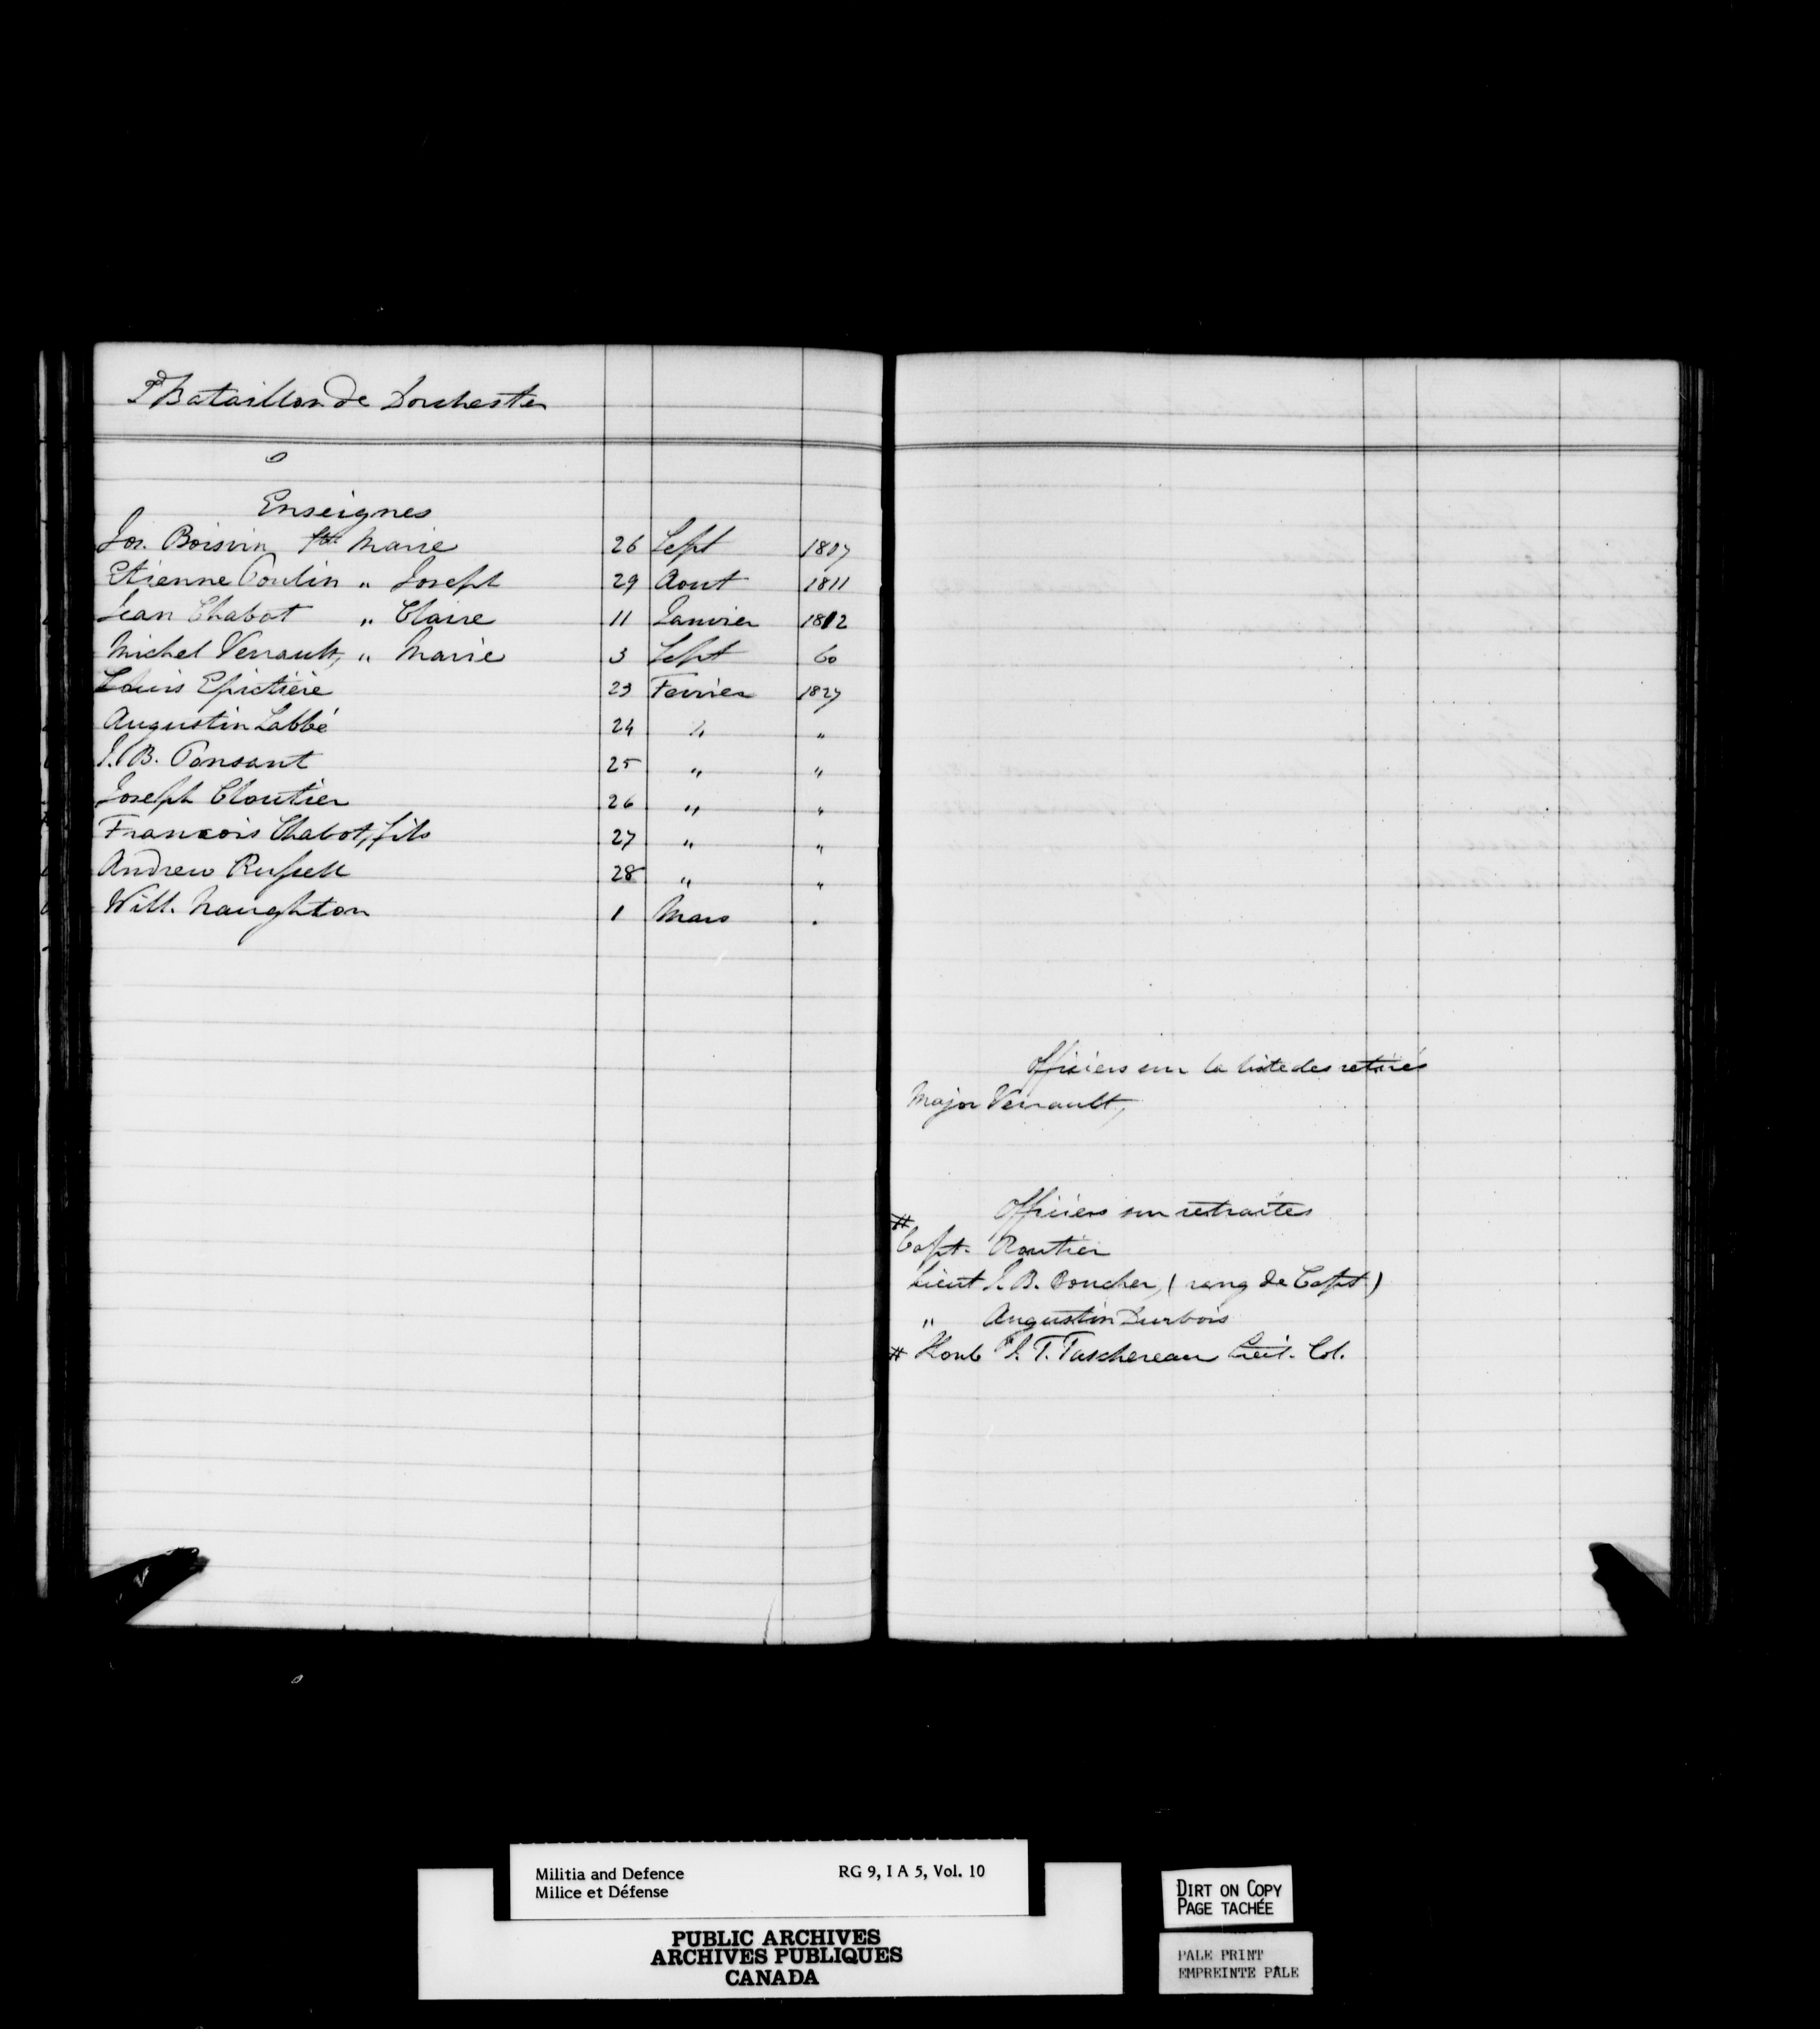 Bataillon de Dorchester
Enseignes
Jos. Boisvin Ste Marie 26 Sept 1807
Etienne Poulin " Joseph 29 Aout 1811
Jean Chabot " Claire 11 Janvier 1812
Michel Verrault, " Marie 3 Sept Do
Louis Epictière 23 Fevrier 1827
Augustin Labbé 24 " "
J. B. Ponsant 25 " "
Joseph Cloutier 26 " "
Francois Chabot, fils 27 " "
Andrew Russell 28 " "
Will. Naughton 1 Mars "
Officiers sur la liste des retirés
Major Verrault,
Officiers sur retraites
# Capt. Routier
Lieut J. B. Boucher, (rang de Capt)
" Augustin Durbois
# Honb J. T. Taschereau Lieut. Col.
Militia and Defence RG 9, I A 5, Vol. 10
Milice et Défense
PUBLIC ARCHIVES
ARCHIVES PUBLIQUES
CANADA
DIRT ON COPY
PAGE TACHÉE
PALE PRINT
EMPREINTE PALE